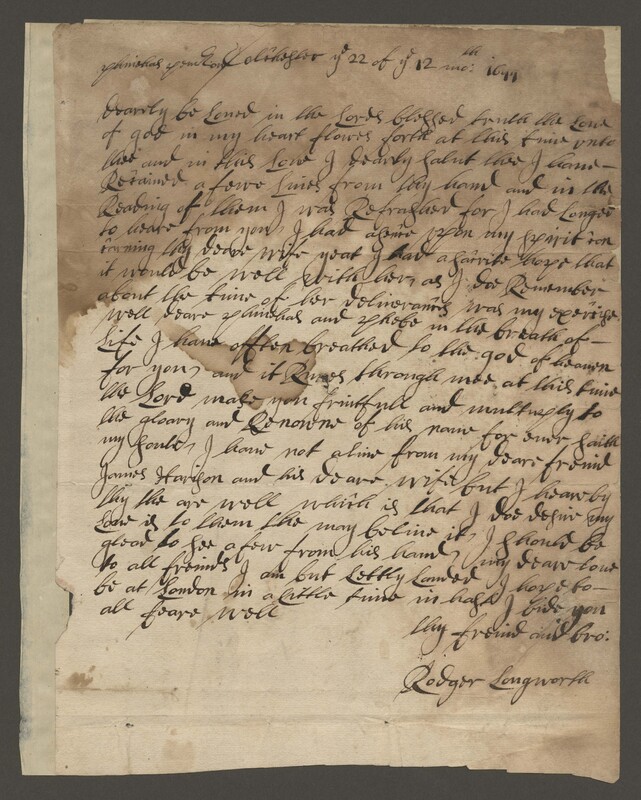 phinehas pemberton Colchester ye 22 of ye 12 mo: th
dearly be Loved in the Lords blessed truth the Love
of god in my heart flowes forth at this time unto
thee and in this Love I dearly salut thee I have
Recained a fewe Lines from thy hand and in the
Reading of them I was Refreshed for I had Longed
to heare from you I had upon my spirit con
cerning thy deare wife yeat I had a hope that
it would be well with her as I doe Remember
about the time of her deliverance was my exercise
well deare phinehas and phebe in the breath of
Life I have often breathed to the god of heaven
for you and it Runes through mee at this time
the Lord make you fruitfull and multiply to
the gloary and Renowne of his name for ever saith
my soule I have not a line from my deare freind
James Harison and his deare wife but I heare by
thy the are well which is that I doe desire my
Love is to them the may belive it I should be
glead to see a few from his hand my deare Love
to all freinds I am but Lettly Landed I hope to
be at London in a Little time in hast I bide you
all feare well
thy freind and bro:
Rodger Longworth